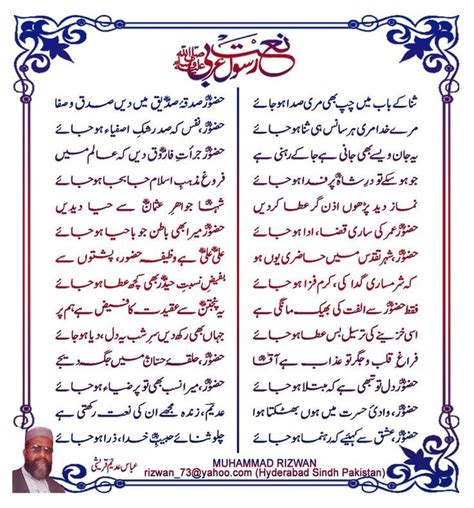 نعت رسول عربی ﷺ
ثنا کے باب میں چپ بھی مری صدا ہو جائے
مرے خدا مری ہر سانس ہی ثنا ہو جائے
یہ جان ویسے بھی جانی ہے جا کے رہنی ہے
جو ہو سکے تو درِ شاہؐ پر فدا ہو جائے
نمازِ دید پڑھوں اذن گر عطا کر دیں
حضورؐ عمر کی ساری قضا، ادا ہو جائے
حضورؐ، شہرِ تقدس میں حاضری یوں ہو
کہ شرمساری گدا کی، کرم فزا ہو جائے
فقط حضورؐ سے الفت کی بھیک مانگی ہے
اسی خزینے کی ترسیل بس عطا ہو جائے
فراغِ قلب و جگر تو عذاب ہے آقاؐ
حضورؐ دل تو تبھی ہے کہ مبتلا ہو جائے
حضورؐ، وادیٔ حسرت میں ہوں بھٹکتا ہوا
حضورؐ عشق سے کہیئے کہ رہنما ہو جائے
حضورؐ صدقۂ صدیقؓ میں دیں صدق و صفا
حضورؐ، نفس کہ صد رشکِ اصفیاء ہو جائے
حضورؐ، جرأتِ فاروقؓ دیں کہ عالم میں
فروغِ مذہبِ اسلام جا بجا ہو جائے
شہا جواہرِ عثمانؓ سے حیا دیدیں
حضورؐ میرا بھی باطن جو باحیا ہو جائے
علیؓ علیؓ ہے وظیفہ حضور، پشتوں سے
بفیضِ نسبتِ حیدرؓ بھی کچھ عطا ہو جائے
یہ پنجتنؓ سے عقیدت کا فیض ہے ہم پر
جہاں بھی رکھ دیں سرِ شب یہ دل، دیا ہو جائے
حضورؐ، حلقۂ حسانؓ میں جگہ دیجے
حضورؐ، میرا نسب بھی تو پر ضیاء ہو جائے
عدیم، زندہ مجھے ان کی نعت رکھتی ہے
چلو ثنائے حبیبِؐ خدا، ذرا ہو جائے
عباس عدیم قریشی
MUHAMMAD RIZWAN
rizwan_73@yahoo.com (Hyderabad Sindh Pakistan)